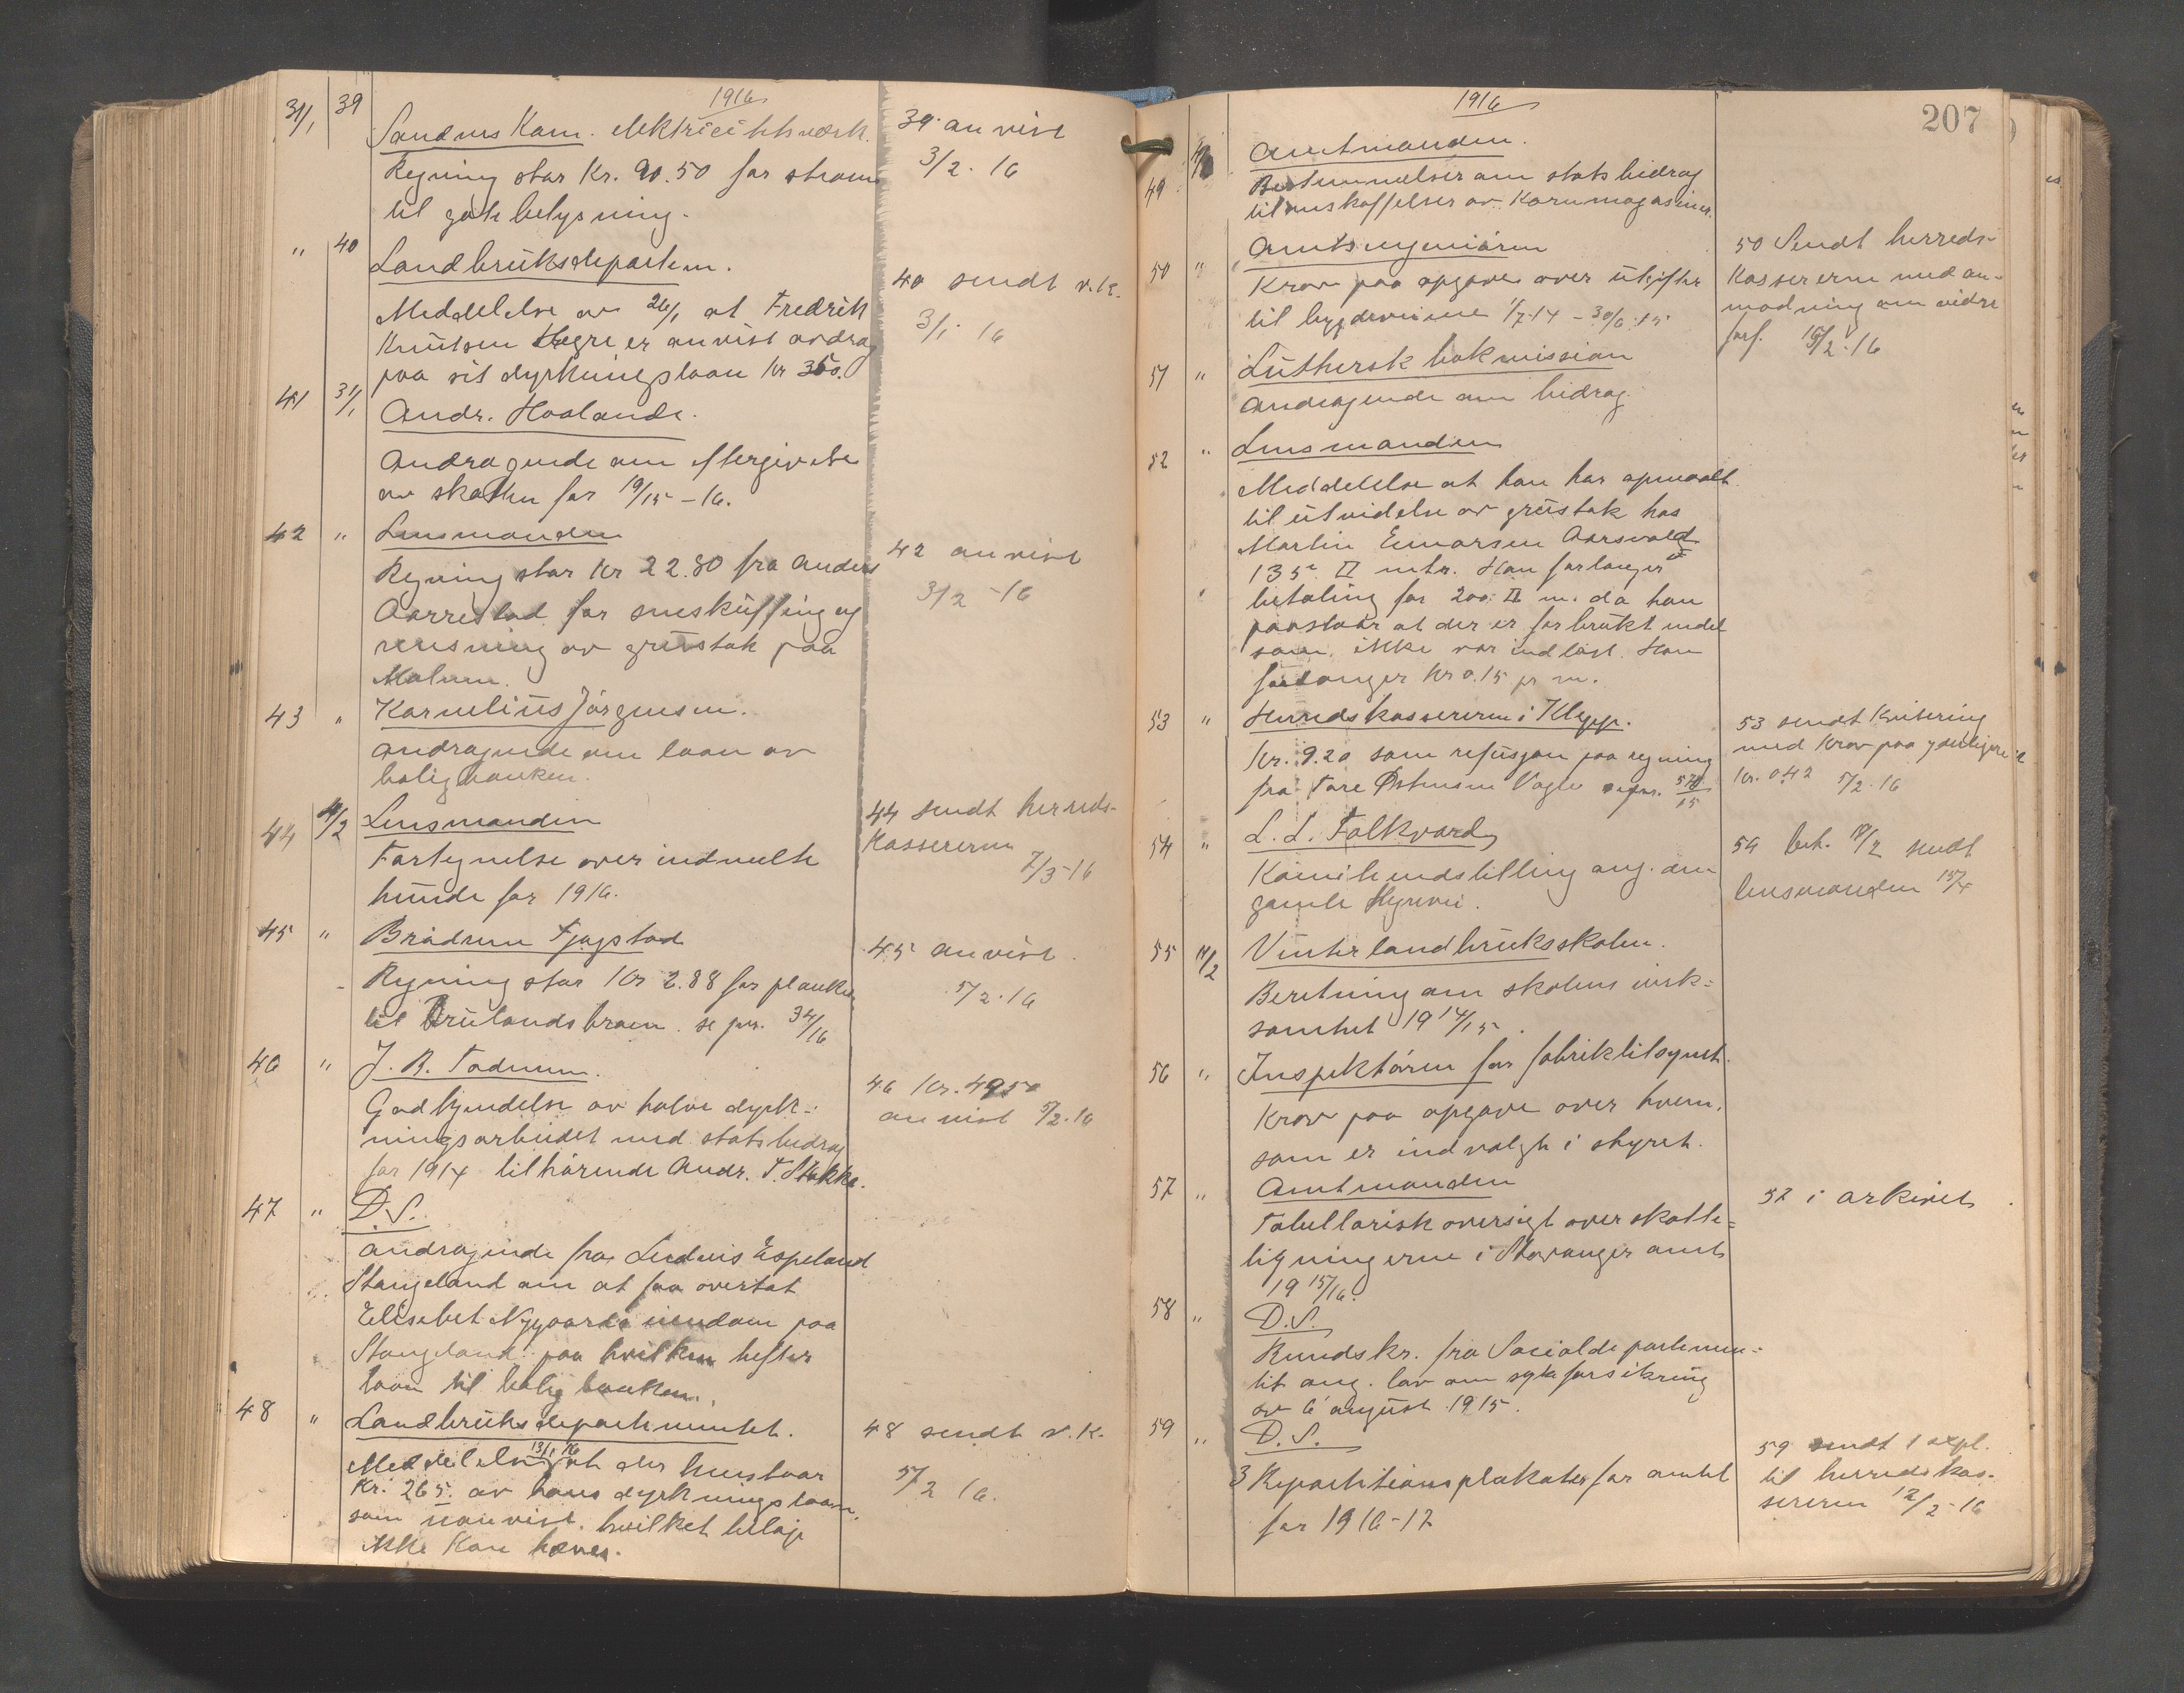 1916
31/1 39 Sandnes Kom. elektricitetsverk. 39 anvist
Regning stor Kr. 90.50 for strøm 3/2. 16
til gatebelysning.
" 40 Landbruksdepartem.
Meddelelse av 26/1 at Fredrik 40 sendt v.k.
Knutsen Hegre er anvist avdrag 3/1. 16
paa sit dyrkningslaan kr 350.
41 31/1 Andr. Hoaland.
Andragende om eftergivelse
av skatten for 19/15 – 16.
42 " Lensmanden 42 anvist
Regning stor Kr 22.80 fra Anders 3/2 – 16
Aarrestad for sneskuffing og
rensning av grustak paa
Malmen.
43 " Kornelius Jørgensen.
Andragende om laan av
boligbanken.
44 4/2 Lensmanden 44 sendt herreds-
Fortegnelse over indmeldte Kassereren
hunde for 1916. 7/3 – 16
45 " Brødrene Fjogstad 45 anvist
Regning stor Kr 2.88 for planker 5/2. 16
til Brulandsbroen. se jnr. 34/16
46 " J. R. Todnem. 46 Kr. 4950
Godkjendelse av halve dyrk- anvist 5/2. 16
ningsarbeidet med statsbidrag
for 1914 tilhørende Andr. T. Stokke.
47 " D.S.
Andragende fra Ludvis Espeland
Stangeland om at faa overtat
Elisabet Nygaards eiendom paa
Stangeland paa hvilken hefter
laan til boligbanken.
48 " Landbruksdepartementet. 48 sendt v.k.
Meddelelse 13/1 16 at der henstaar 5/2 16.
Kr. 265. av hans dyrkningslaan
som uanvist. hvilket beløp
ikke kan hæves.
1916 207
49 4/2 Amtmanden.
Bestemmelser om statsbidrag
til anskaffelser av Kornmagasiner.
50 " Amtsingeniøren 50 Sendt herreds-
Krav paa opgave over utgifter Kassereren med an-
til bygdeveiene 1/7.14 – 30/6.15 modning om vidre
51 " Luthersk bokmission forf. 15/2. 16
Andragende om bidrag.
52 " Lensmanden
Meddelelse at han har opmaalt
til utvidelse av grustak hos
Martin Einarsen Aarsvold
135 □ mtr. Han forlanger
betaling for 200 □ m. da han
paastaar at der er forbrukt endel
som ikke var indløst. Han
forlanger kr 0.15 pr m.
53 " Herredskassereren i Klepp. 53 sendt kvitering
Kr. 9.20 som refusjon paa regning med krav paa yderligere
fra Tore Østensen Vagle se jnr. 578/15 Kr. 042 5/2. 16
54 " L. L. Folkvord 54 beh. 18/2 sendt
Komiteindstilling ang. den lensmanden 15/4
gamle Høgevei.
55 11/2 Vinterlandbruksskolen.
Beretning om skolens virk-
somhet 1914/15.
56 " Inspektøren for fabriktilsynet.
Krav paa opgave over hvem
som er indvalgt i styret.
57 " Amtmanden 57 i arkivet
Tabellarisk oversigt over skatte-
ligningerne i Stavanger amt
19 15/16.
58 " D.S.
Rundskr. fra Socialdepartemen-
tet ang. lov om sykeforsikring
av 6 august 1915.
59 " D.S. 59 sendt 1 expl.
3 Repartitionsplakater for amtet til herredskas-
for 1916 – 17 sereren 12/2 – 16